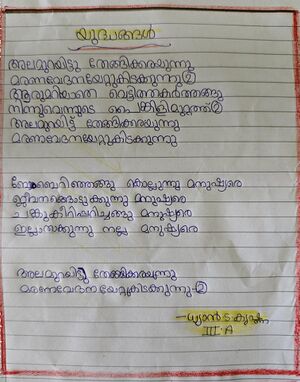 യുദ്ധങ്ങൾ
അലമുറയിട്ടു തേങ്ങിക്കരയുന്നു
മരണവേദനയേറ്റുകിടക്കുന്നു ②
ആരുമറിയാതെ വെട്ടിത്തകർത്തങ്ങു
നിന്നുവെന്നുടെ പൈങ്കിളിമുറ്റത്ത് ②
അലമുറയിട്ട് തേങ്ങിക്കരയുന്നു
മരണവേദനയേറ്റുകിടക്കുന്നു
ബോംബെറിഞ്ഞങ്ങു കൊല്ലുന്നു മനുഷ്യരെ
ജീവനങ്ങെടുക്കുന്നു മനുഷ്യരെ
ചങ്കുകീറിപ്പറിച്ചങ്ങു മനുഷ്യരെ
ഇല്ലാതാക്കുന്നു നല്ല മനുഷ്യരെ
അലമുറയിട്ടു തേങ്ങിക്കരയുന്നു
മരണവേദനയേറ്റുകിടക്കുന്നു - ②
ധ്യാൻ. S. കൃഷ്ണ
III. A